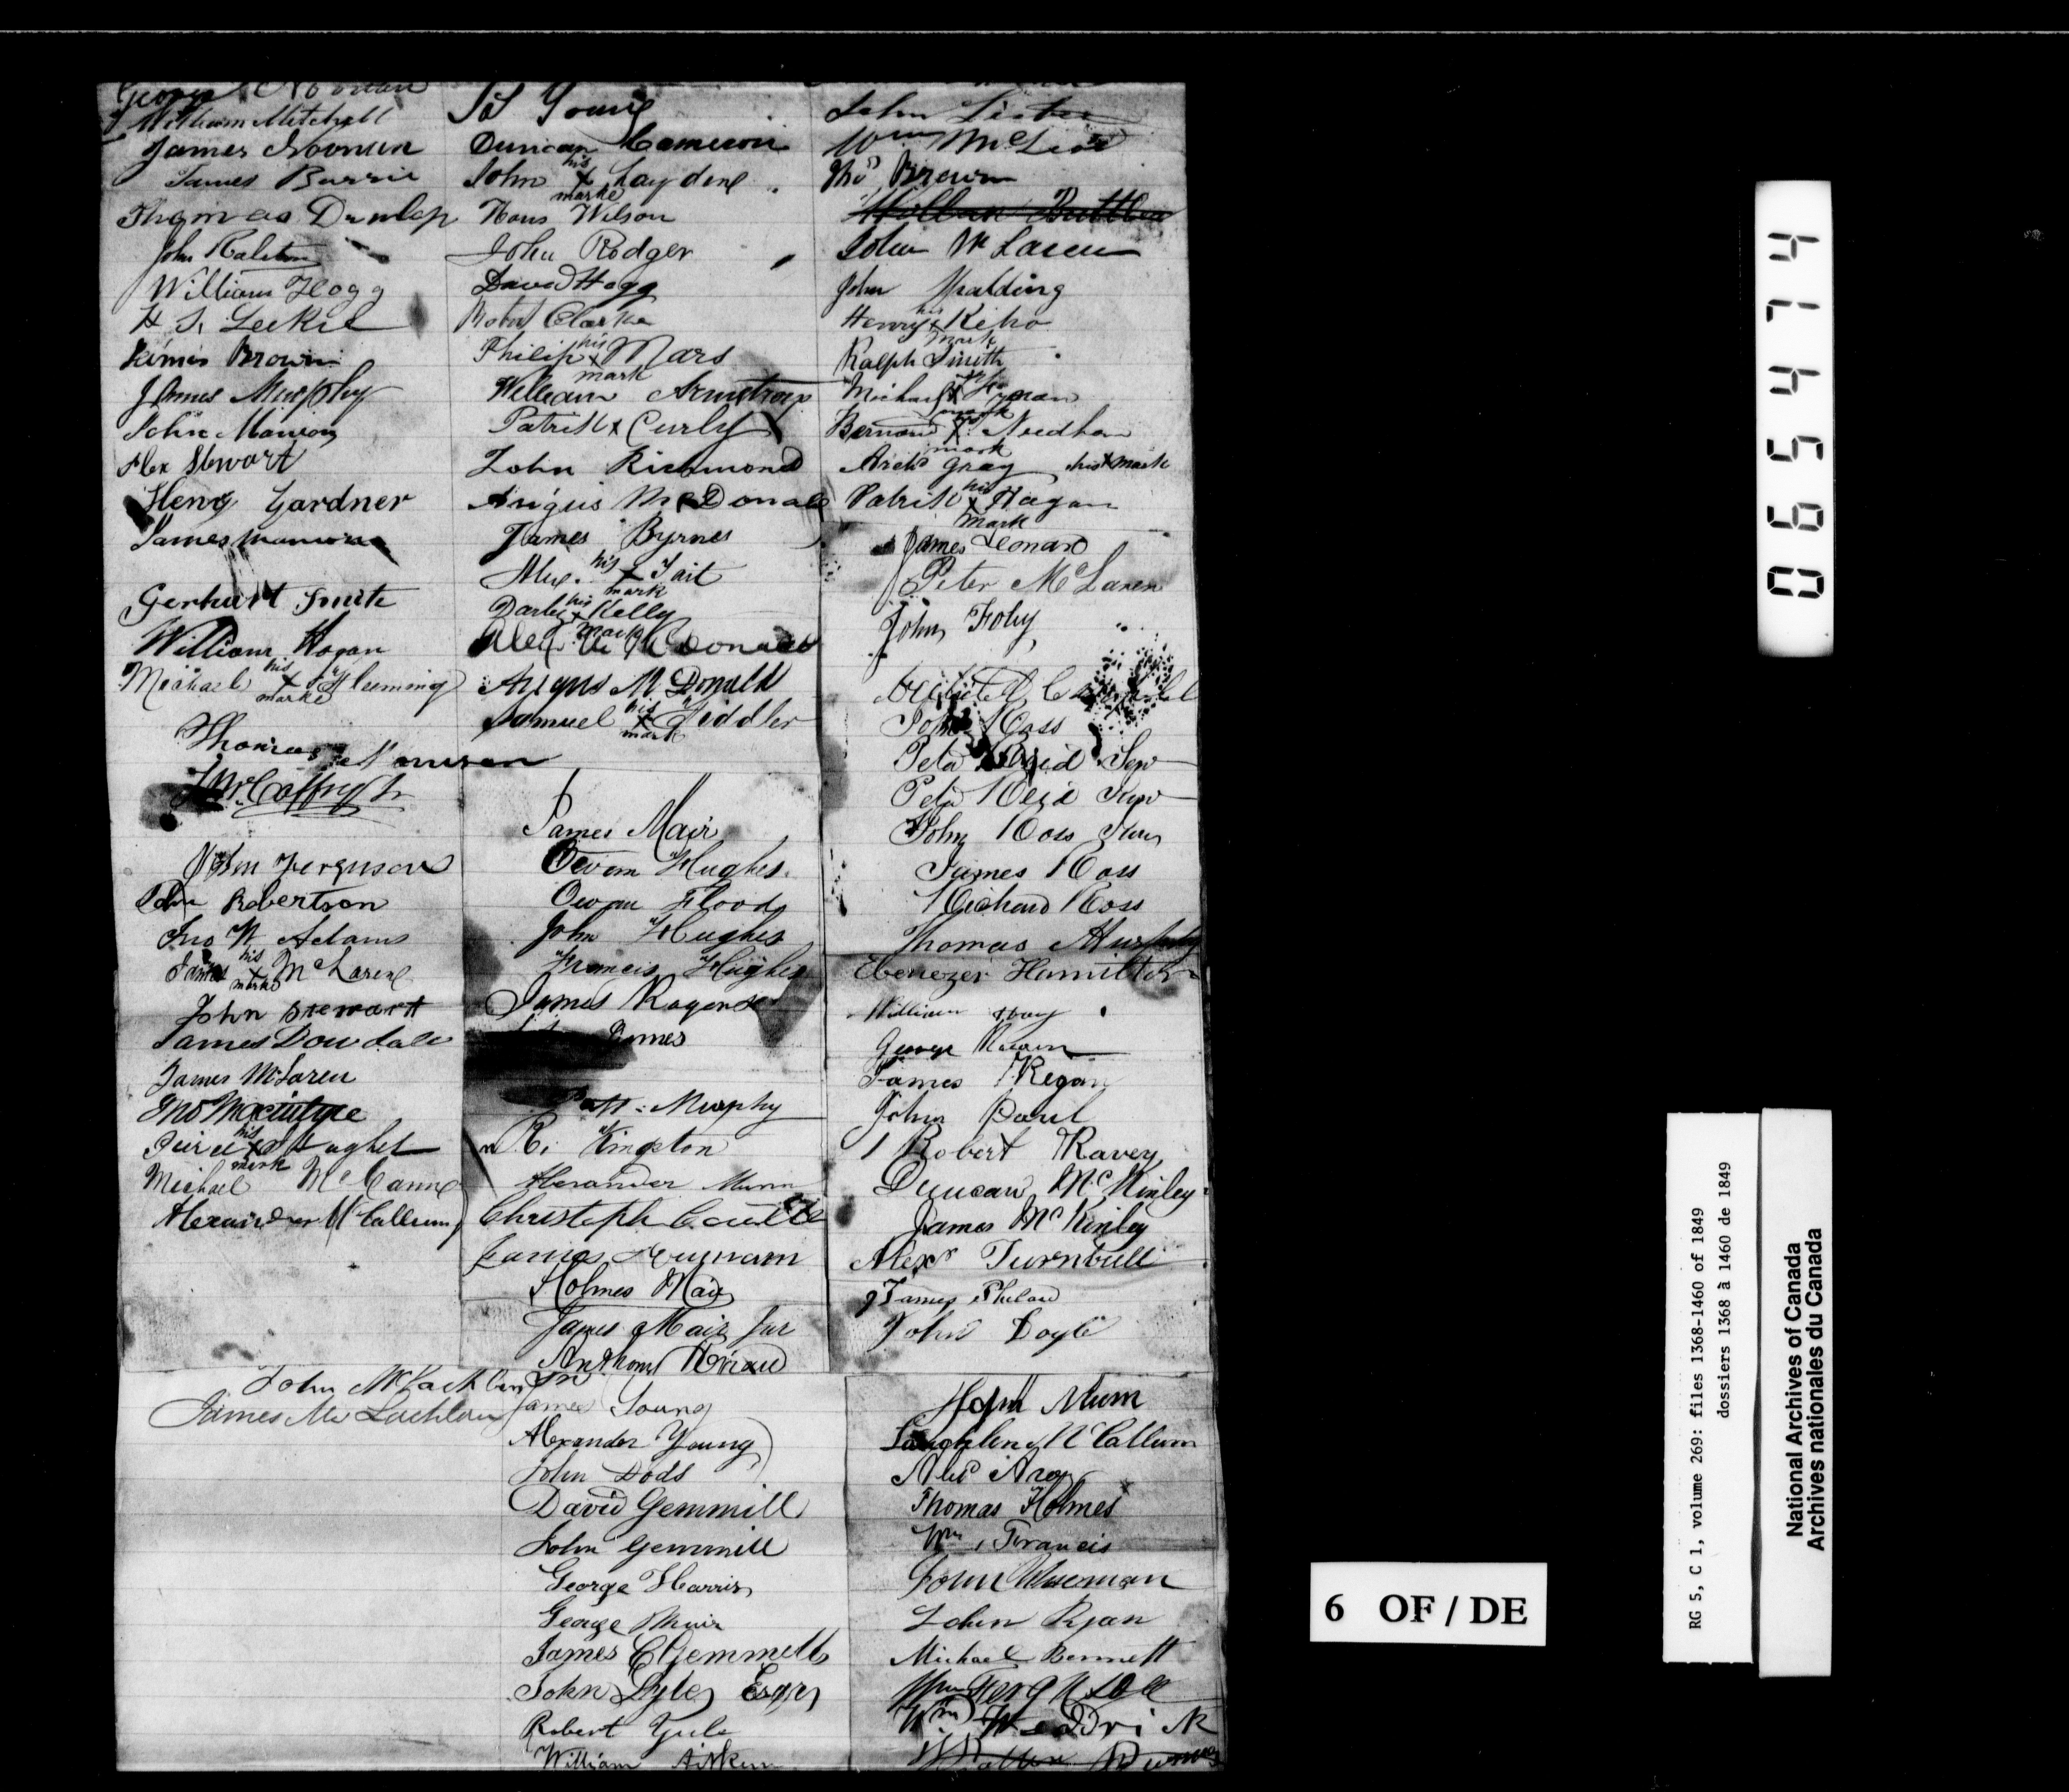 George Noonan
William Mitchell
James Noonan
James Barrie
Thomas Dunlap
John Ralston
William Hogg
James Brown
James Murphy
John Manion
Alex Stewart
Henry Gardner
James Manion
Gerhart Smith
William Hogan
Michael his x marke Fleming
Thomas
John Ferguson
John Robertson
Jno W Adams
James his x marke McLaren
John Stewart
James Dowdall
James McLaren
Jno Macintyre
his x mark
Michael McCanne
Alexander McCallum
John McLachlan
James McLachlan
Young
Duncan Cameron
John his x marke Laydene
Hans Wilson
John Rodger
David Hogg
Robert Clarke
Philip his x mark Mars
William Armstrong
Patrick x Curly
John Richmond
Angus McDonald
James Byrnes
Alex. his x mark Tait
Darby his x mark Kelly
Alex McDonald
Angus McDonald
Samuel his x mark Fiddler
James Mair
Owen Hughes
Owen Flood
John Hughes
Francis Hughes
James Rogers
Patt: Murphy
R. Kingston
Alexander Munn
Christoph
James
Holmes Mair
James Mair Jur
Anthony
James Young
Alexander Young
John Dods
David Gemmill
John Gemmill
George Harris
George Muir
James C Gemmell
John Lyle Esqr
Robert Yule
William Aitken
John Lister
Wm
Thos Brown
William Buttler
John McLaren
John Spalding
Henry his x mark Keho
Ralph Smith
Michael x mark
Bernard x mark Needham
Archd Gray his x mark
Patrick his x mark Hagan
James Leonard
Peter McLaren
John Foley
John Ross
Peter Reid Senr
Peter Reid Junr
John Ross Junr
James Ross
Richard Ross
Thomas Murphy
Ebenezer Hamilton
William
George
James Regan
John Paul
Robert Ravey
Duncan McKinley
James McKinley
Alexr Turnbull
James Phelan
John Doyle
John Munn
Laughlen McCallum
Thomas Holmes
Wm Francis
John Wiseman
John Ryan
Michael Bennett
Wm
Wm
065474
6 OF / DE
RG 5, C 1, volume 269: files 1368-1460 of 1849
dossiers 1368 à 1460 de 1849
National Archives of Canada
Archives nationales du Canada